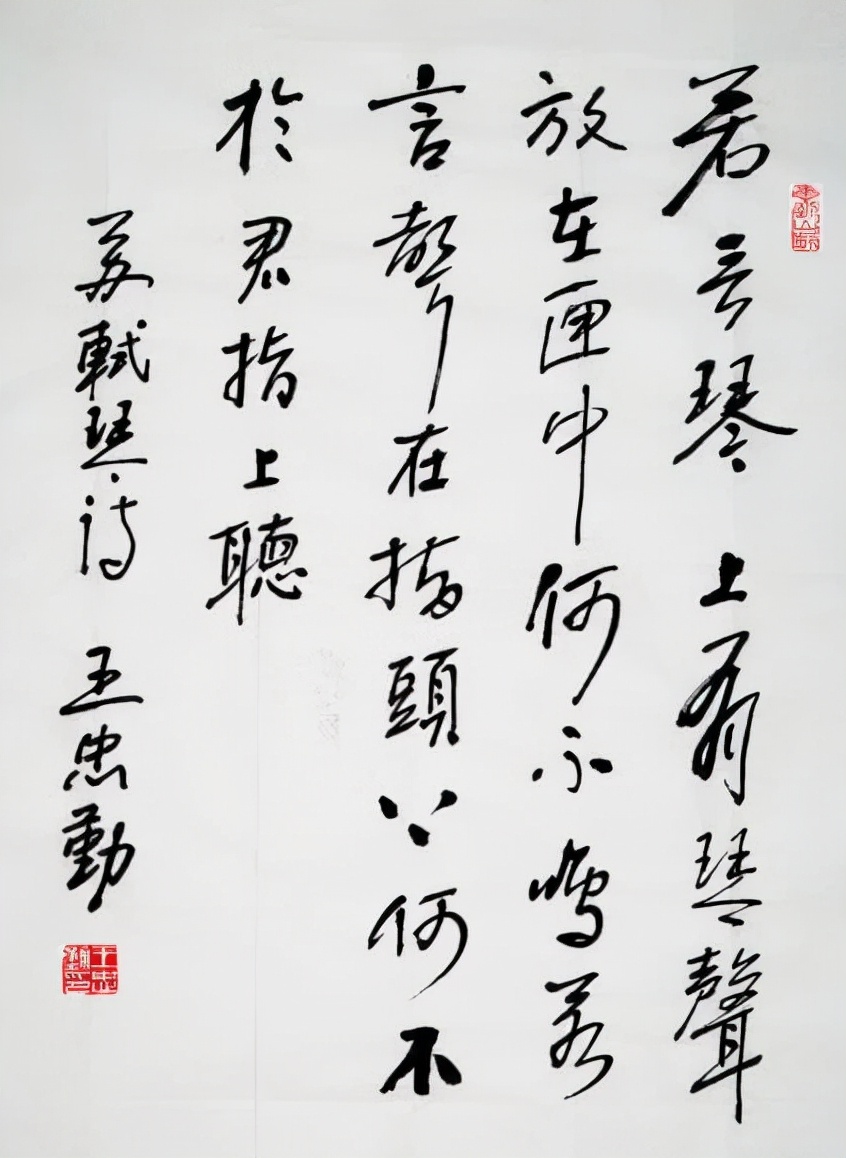 若言琴上有琴聲
放在匣中何不鳴若
言聲在指頭上何不
於君指上聽
蘇軾琴詩 王忠勤
王忠勤印